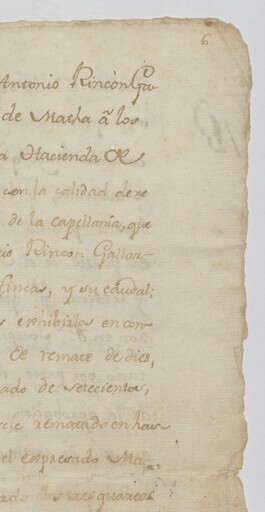 6
Antonio Rincon Ga-
de Matha â los
a Hacienda de
con la calidad de re
de la capellania, que
cio Rincon Gallar-
fincas, y su caudal;
s exhibirlos en con-
de remate de dies,
ado de setecientos,
sele rematado en has-
el expresado Ma-
tres quartos